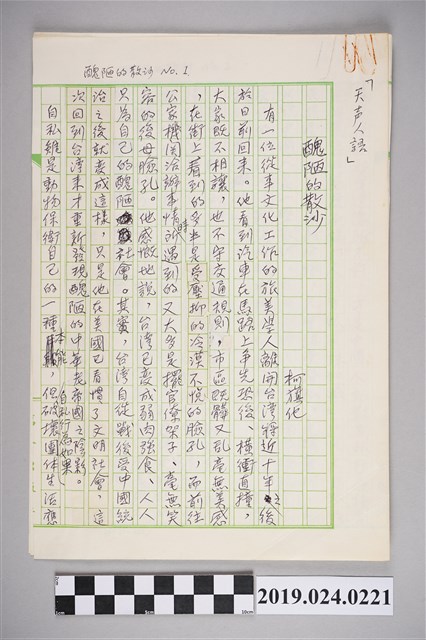 醜陋的散沙 No.1
「天声人語」
醜陋的散沙
柯旗化
有一位從事文化工作的旅美學人離開台灣將近十年之後
於日前回来。他看到汽車在馬路上争先恐後、橫衝直撞，
大家既不相讓，也不守交通規則，市區骯髒又乱毫無美感
，在街上看到的多半是受壓抑的冷漠不悅的臉孔，而前往
公家機関洽辦事情時所遇到的又大多是擺官僚架子、毫無笑
容的後母臉孔。他感慨地說，台湾已変成弱肉强食、人人
只為自己的醜陋社會。其實，台湾自從戰後受中國統
治之後就変成這樣，只是他在美國已看慣了文明社會，這
次回到台湾来才重新發現醜陋的中華老帝國之陰影。
自私雖是動物保衛自己的一種本能，但自私行為如果破壞團体生活應
1cm
5cm
10cm
2019.024.0221